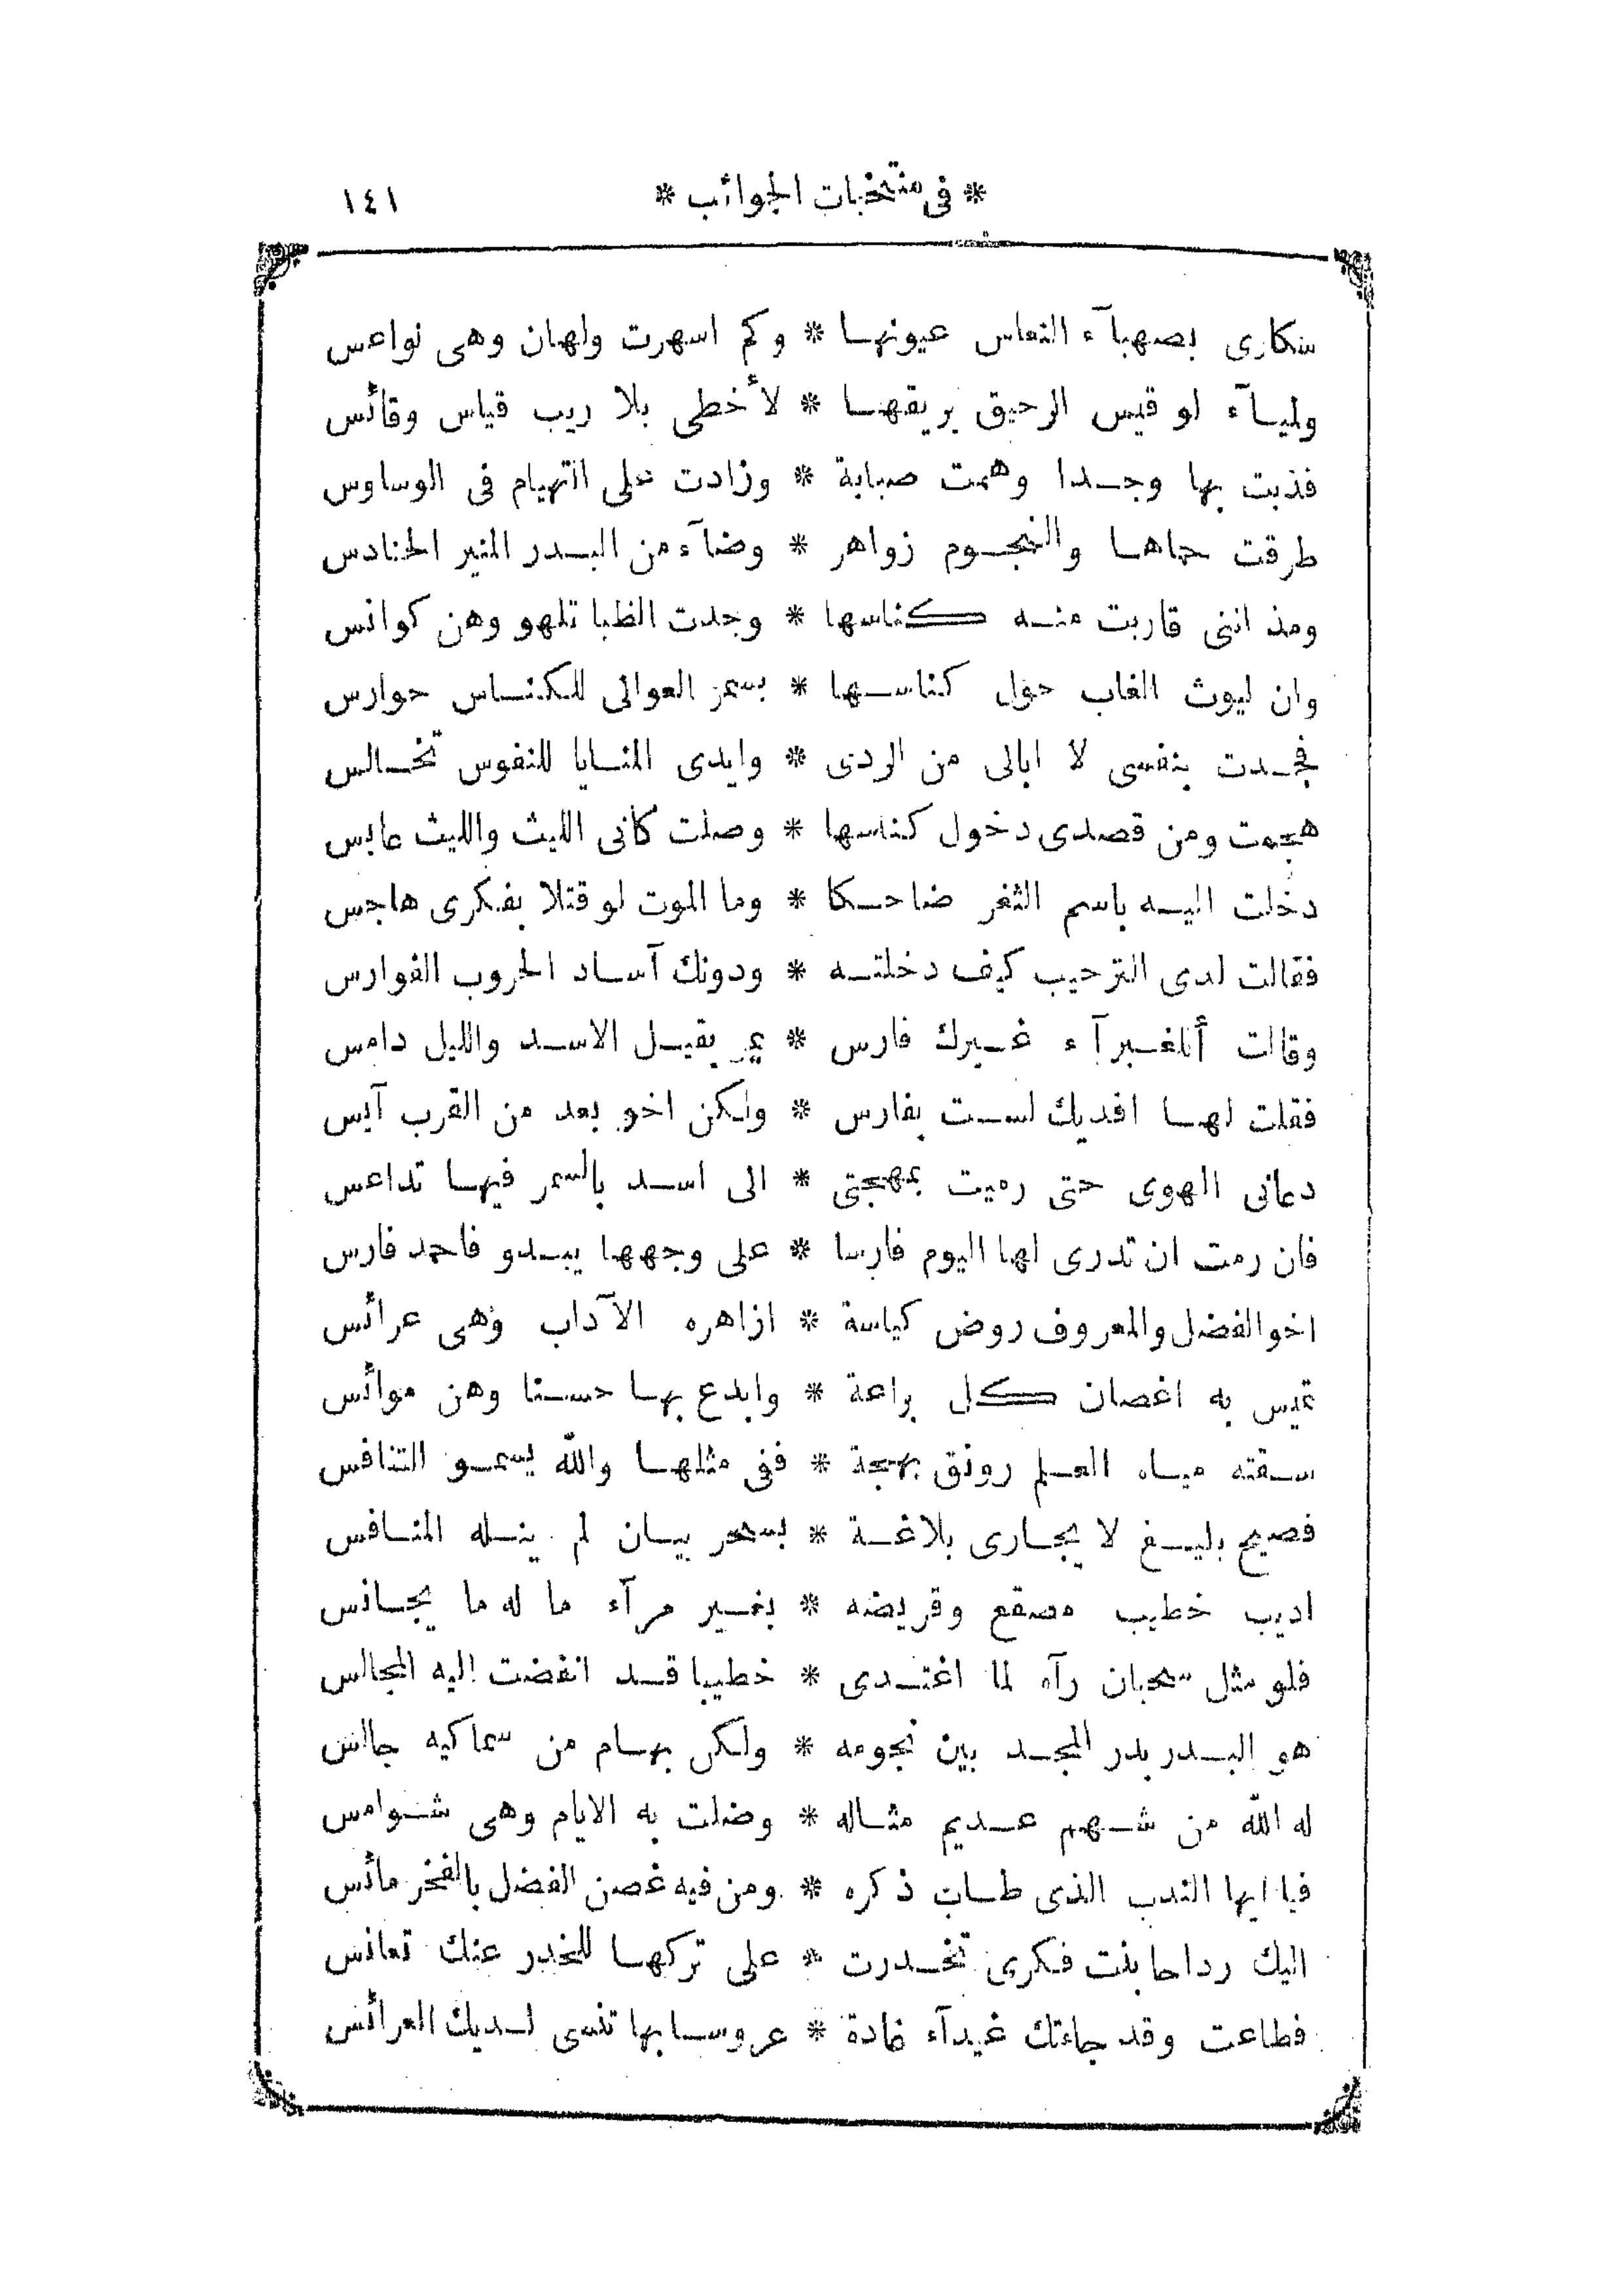 * فى منتخبات الجوائب * ١٤١
سكارى بصهبآء النعاس عيونها * وكم اسهرت ولهان وهى نواعس
ولميآء لو قيس الرحيق بريقها * لأخطى بلا ريب قياس وقائس
فذبت بها وجدا وهمت صبابة * وزادت على التهيام فى الوساوس
طرقت حماها والنجوم زواهر * وضآء من البدر المنير الحنادس
ومذ اننى قاربت منه كناسها * وجدت الظبا تلهو وهن كوانس
وان ليوث الغاب حول كناسها * بسمر العوالى للكناس حوارس
فجدت بنفسى لا ابالى من الردى * وايدى المنايا للنفوس تخالس
هجمت ومن قصدى دخول كناسها * وصلت كانى الليث والليث عابس
دخلت اليه باسم الثغر ضاحكا * وما الموت لو قتلا بفكرى هاجس
فقالت لدى الترحيب كيف دخلته * ودونك آساد الحروب الفوارس
وقالت أللغبرآء غيرك فارس * يمر بقيل الاسد والليل دامس
فقلت لها افديك لست بفارس * ولكن اخو بعد من القرب آيس
دعانى الهوى حتى رميت بمهجتى * الى اسد بالسمر فيها تداعس
فان رمت ان تدرى لها اليوم فارسا * على وجهها يبدو فاحمد فارس
اخو الفضل والمعروف روض كياسة * ازاهره الآداب وهى عرائس
تميس به اغصان كل براعة * وابدع بها حسنا وهن موائس
سقته مياه العلم رونق بهجة * ففى مثلها والله يسمو التنافس
فصيح بليغ لا يجارى بلاغة * بسحر بيان لم ينله المنافس
اديب خطيب مصقع وقريضه * بغير مرآء ما له ما يجانس
فلو مثل سحبان رآه لما اغتدى * خطيبا قد انفضت اليه المجالس
هو البدر بدر المجد بين نجومه * ولكن بهام من سماكيه جالس
له الله من شهم عديم مثاله * وضلت به الايام وهى شوامس
فيا ايها الندب الذى طاب ذكره * ومن فيه غصن الفضل بالفخر مائس
اليك رداحا بنت فكرى تخدرت * على تركها للخدر عنك تعانس
فطاعت وقد جاءتك غيدآء غادة * عروسا بها تنسى لديك العرائس